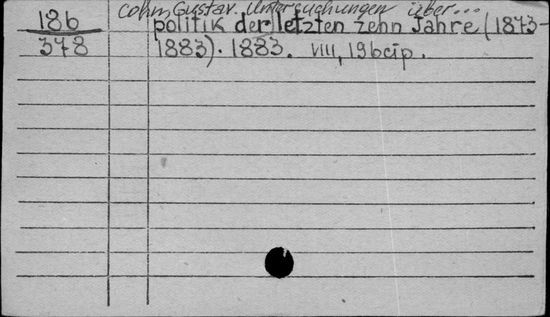 186 Cohn, Gustav. Untersuchungen über...
politik der letzten zehn Jahre (1873-
378 1883). 1883. VIII, 196 cip.